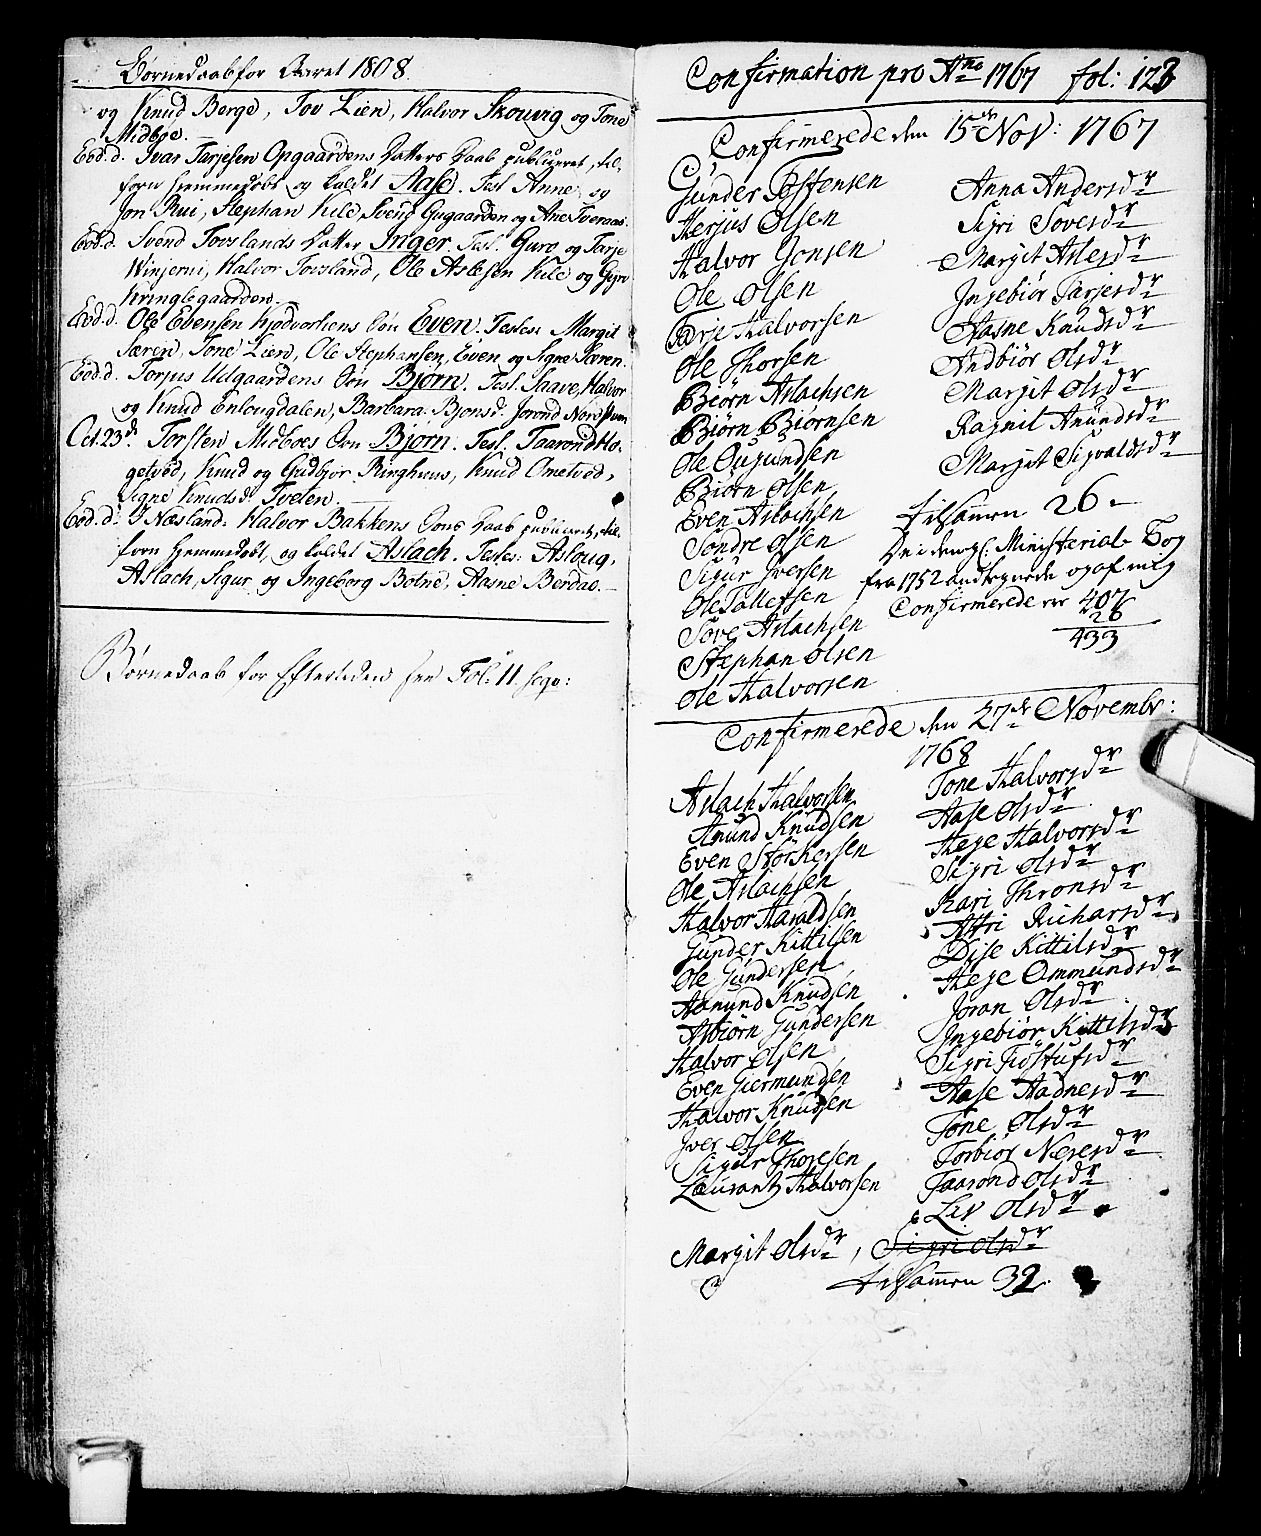 Børnedaab for Aaret 1808.
og Knud Berge, Tov Lien, Halvor Skouvig og Tone
Midbøe.
Eod. d. Ivar Tarjesen Opgaardens Datters Daab publiceret, til-
forn hjemmedøbt og kaldet Aase. Test. Anne og
Jon Rui, Stephan Kile, Svend Gugaarden og Ane Tveraas.
Eod. d. Svend Tovslands Datter Inger. Test. Guro og Tarje
Winjemi, Halvor Tovsland, Ole Aslesen Kile og Gyro
Kringlegaarden.
Eod. d. Ole Evensen Kjødvortiens Søn Even. Testes: Margit
Særen, Tone Lien, Ole Stephansen, Even og Signe Særen.
Eod. d. Torjus Udgaardens Søn Bjørn. Test. Saave, Halvor
og Knud Enlougdalen, Barbara Bjonsd: Jorond Norstuen
Oct. 23d. Torsten Midboes Søn Bjørn. Test. Taarond Ho-
getved, Knud og Gudbjør Ringhuus, Knud Ometved,
Signe Knudsd. Tvelen.
Eod. d. I Næsland: Halvor Bakkens Søns Daab publiceret, til-
forn hjemmedøbt, og kaldet Aslach. Testes: Asloug,
Aslach, Sigur og Ingeborg Botne, Aasne Berdal.
Børnedaab for Eftertiden see Fol: 11. seqv:
Confirmation pro Ano 1767 fol: 123
Confirmerede den 15de Nov: 1767
Gunder Østensen
Herjus Olsen
Halvor Jonsen
Ole Olsen
Tærje Halvorsen
Ole Thorsen
Biørn Aslachsen
Biørn Biørnsen
Ole Ougundsen
Biørn Olsen
Even Aslachsen
Sondre Olsen
Sigur Iversen
Ole Tallefsen
Søve Aslachsen
Stephan Olsen
Ole Halvorsen
Anna Andersdr
Sigri Søvesdr
Margit Aslesdr
Ingebiør Tarjesdr
Aasne Knudsdr
Andbiør Olsdr
Margit Olsdr
Ragnil Anundsdr
Margit Sigvaldsdr
tilsamen 26
De i den gl: Ministerial Bog
fra 1752 andtegnede og af mig
Confirmerede er 407
26
433
Confirmerede den 27de Novembr:
1768
Aslach Halvorsen
Anund Knudsen
Even Størkersen
Ole Aslachsen
Halvor Haraldsen
Gunder Kittilsen
Ole Gundersen
Aanund Knudsen
Asbiørn Gundersen
Halvor Olsen
Even Giermundsen
Halvor Knudsen
Iver Olsen
Sigur Thoresen
Laurantz Halvorsen
Tone Halvorsdr
Aase Olsdr
Hege Halvorsdr
Sigri Olsdr
Kari Thronsdr
Astri Richarsdr
Dise Kittilsdr
Hege Ommundsdr
Joran Olsdr
Ingebiør Kittilsdr
Sigri Tiøstufsdr
Aase Aadnesdr
Tone Olsdr
Torbiør Neresdr
Taarond Olsdr
Liv Olsdr
Margit Olsdr, Sigri Olsdr
tilsamen 32.